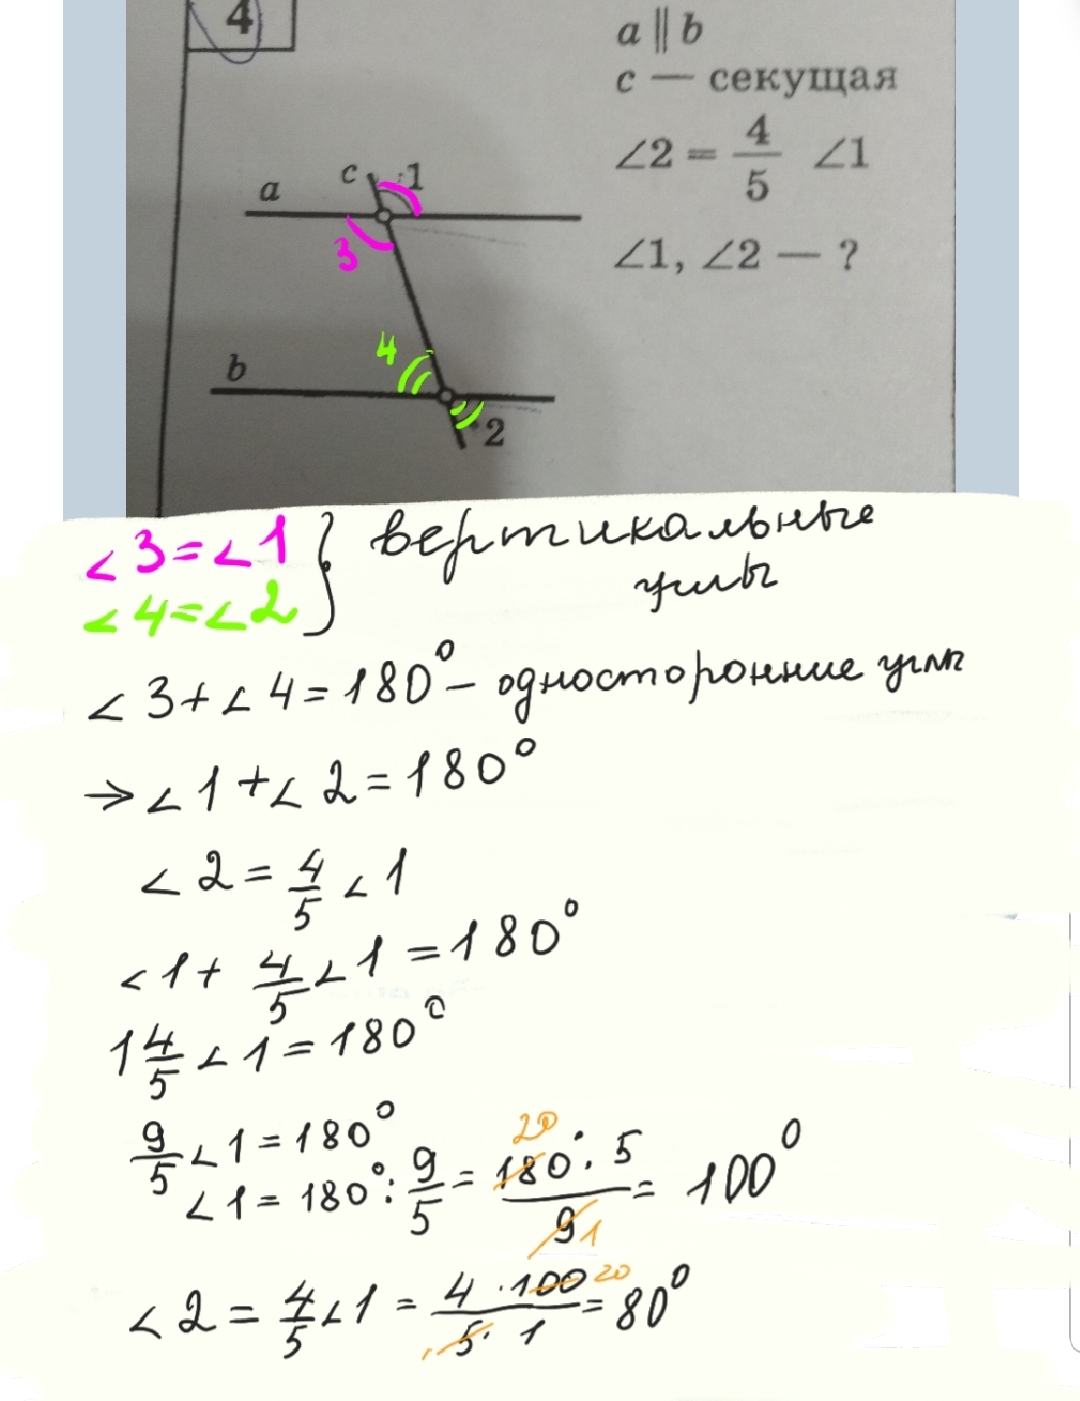 4
a ∥ b
c — секущая
∠2 = 4/5 ∠1
∠1, ∠2 — ?
c 1
a
3
4
b
2
∠3=∠1 } вертикальные
∠4=∠2 углы
∠3+∠4=180° – односторонние углы
→ ∠1+∠2=180°
∠2= 4/5 ∠1
∠1+ 4/5 ∠1 =180°
1 4/5 ∠1=180°
9/5 ∠1=180°
20
∠1= 180° : 9/5 = 180 · 5 / 9 1 = 100°
∠2 = 4/5 ∠1 = 4 · 100 20 / 5 · 1 = 80°